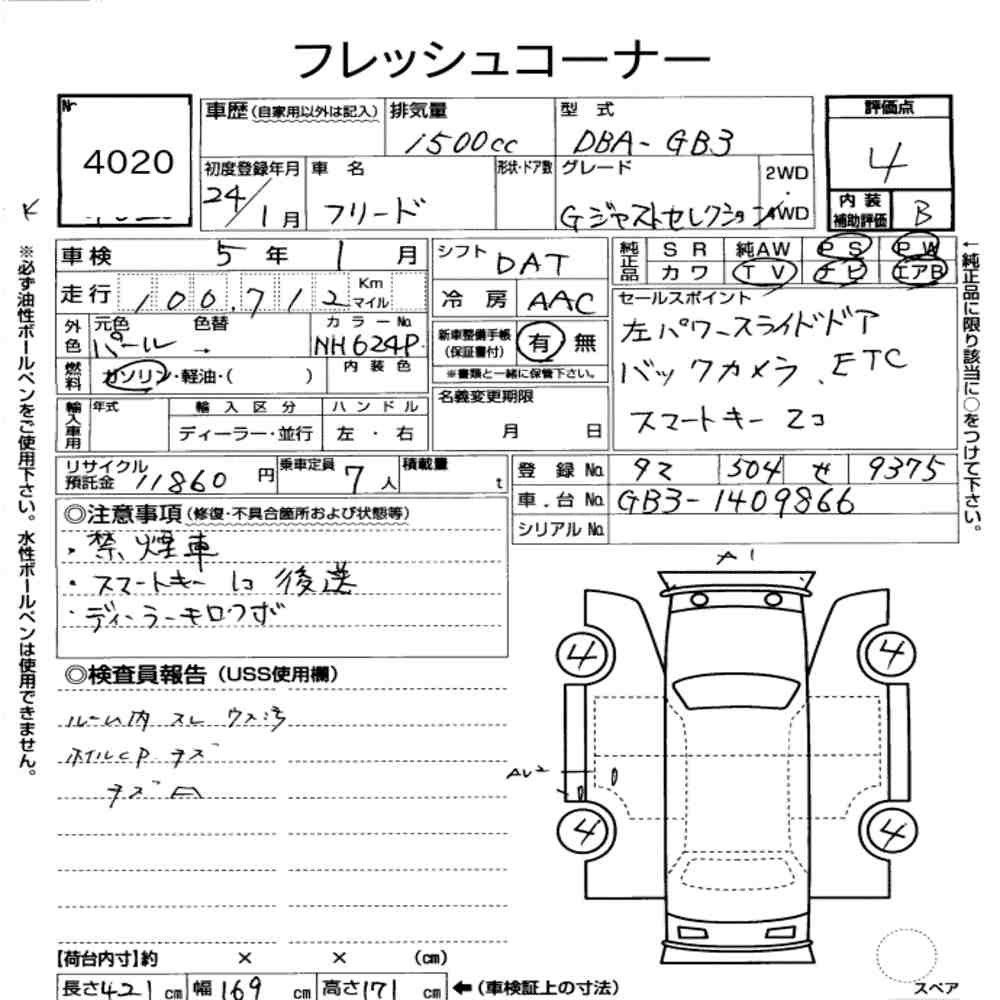 フレッシュコーナー
Nr
4020
車歴(自家用以外は記入)
排気量
1500cc
型 式
DBA-GB3
評価点
4
内装
補助評価
B
初度登録年月
24/1月
車 名
フリード
形状・ドア数
グレード
Gジャストセレクション
2WD
・
4WD
車検 5年 1月
走行 100,712 Km
マイル
外色
元色
パール →
色替
カラーNo.
NH624P
燃料
ガソリン・軽油・( )
内装色
輸入車用
年式
輸入区分
ディーラー・並行
ハンドル
左・右
シフト DAT
冷房 AAC
新車整備手帳
(保証書付)
有 無
※書類と一緒に保管下さい。
名義変更期限
月 日
純正品
SR 純AW PS PW
カワ TV ナビ エアB
セールスポイント
左パワースライドドア
バックカメラ、ETC
スマートキー 2コ
リサイクル
預託金 11860円
乗車定員 7人
積載量 t
登録No. 92 504 せ 9375
車.台No. GB3-1409866
シリアルNo.
◎注意事項(修復・不具合箇所および状態等)
・禁煙車
・スマートキー 1コ 後送
・ディーラーキロワズ
◎検査員報告(USS使用欄)
ルーム内 スレ ウス汚
ホイルCP キズ
キズ凹
A1
4
4
AU2
4
4
【荷台内寸】約 × × (cm)
長さ421cm 幅169cm 高さ171cm ←(車検証上の寸法)
スペア
※必ず油性ボールペンをご使用下さい。水性ボールペンは使用できません。
←純正品に限り該当に○をつけて下さい。